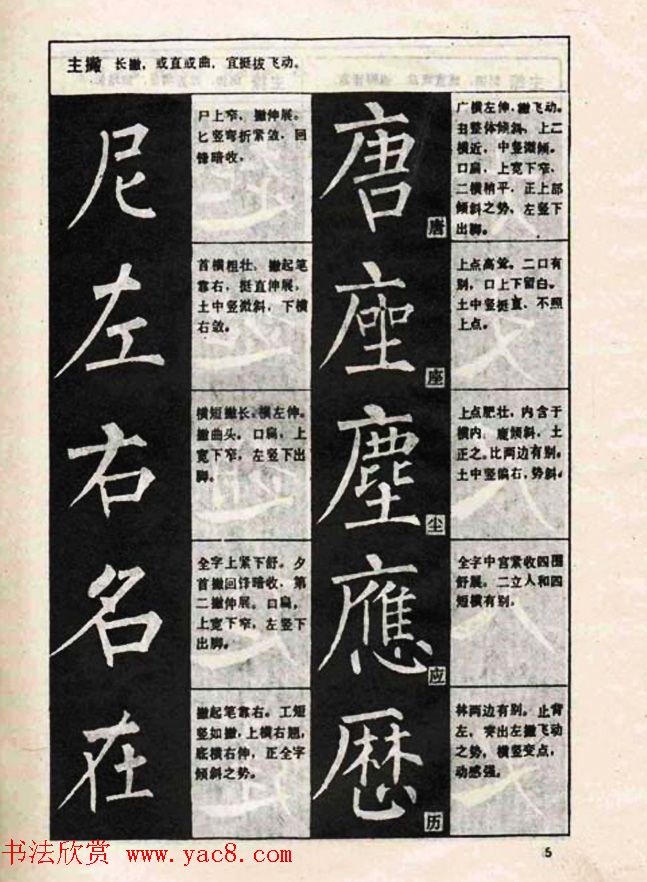 主撇 长撇，或直或曲，宜挺拔飞动。
尼
尸上窄，撇伸展。
匕竖弯折紧敛，回
锋暗收。
左
首横粗壮、撇起笔
靠右，挺直伸展，
土中竖微斜，下横
右敛。
右
横短撇长。横左伸。
撇曲头。口扁，上
宽下窄，左竖下出
脚。
名
全字上紧下舒。夕
首撇回锋暗收，第
二撇伸展。口扁，
上宽下窄，左竖下
出脚。
在
撇起笔靠右。工短
竖如撇，上横右翘，
底横右伸，正全字
倾斜之势。
唐
唐
广横左伸，撇飞动。
整体倾斜，上二
横近，中竖微倾。
口扁，上宽下窄，
二横稍平，正上部
倾斜之势，左竖下
出脚。
座
座
上点高耸。二口有
别，口上下留白。
土中竖挺直，不照
上点。
塵
尘
上点肥壮，内含于
横内。鹿倾斜，土
正之。比两边有别。
土中竖偏右，势斜。
應
应
全字中宫紧收四围
舒展。二立人和四
短横有别。
歷
历
林两边有别。止背
左，突出左撇飞动
之势，横竖变点，
动感强。
书法欣赏 www.yac8.com
5